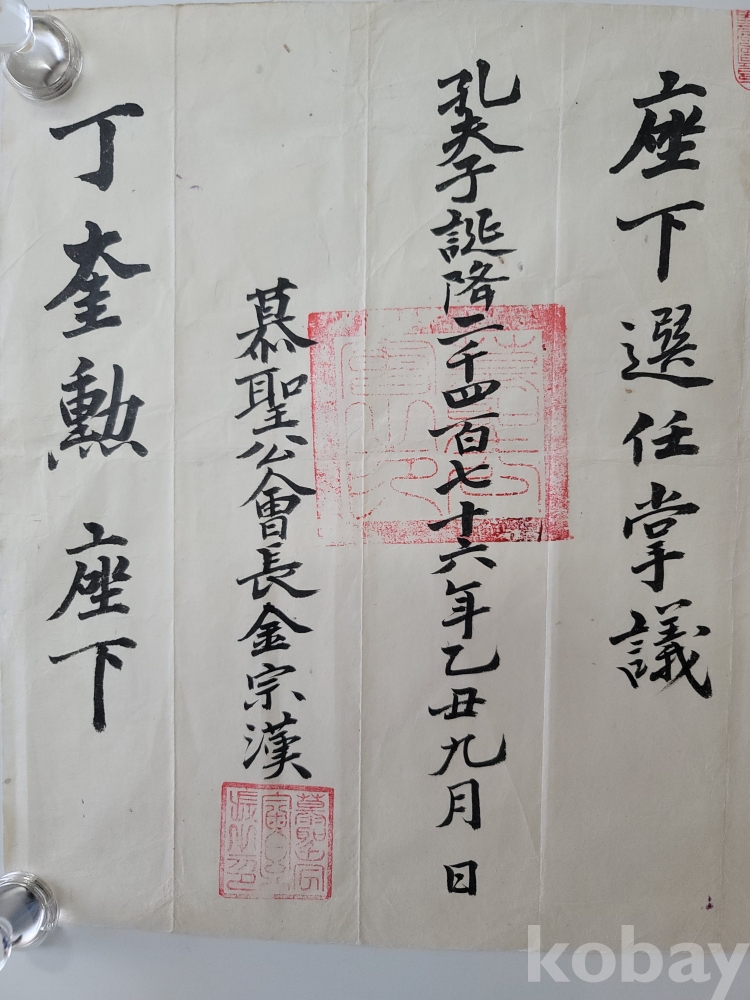 座下選任掌議
孔夫子誕降二千四百七十六年乙丑九月 日
慕聖公會長金宗漢
丁奎勳 座下
kobay